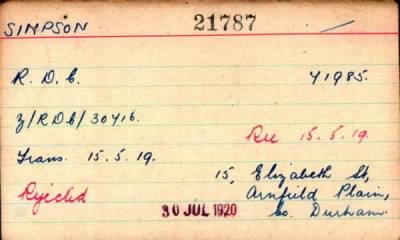 SIMPSON 21787
R. D. C. 71985.
3/RDC/30716.
Rec 15.5.19.
Trans. 15.5.19.
15, Elizabeth St,
Rejected Annfield Plain,
30 JUL 1920 Co. Durham.